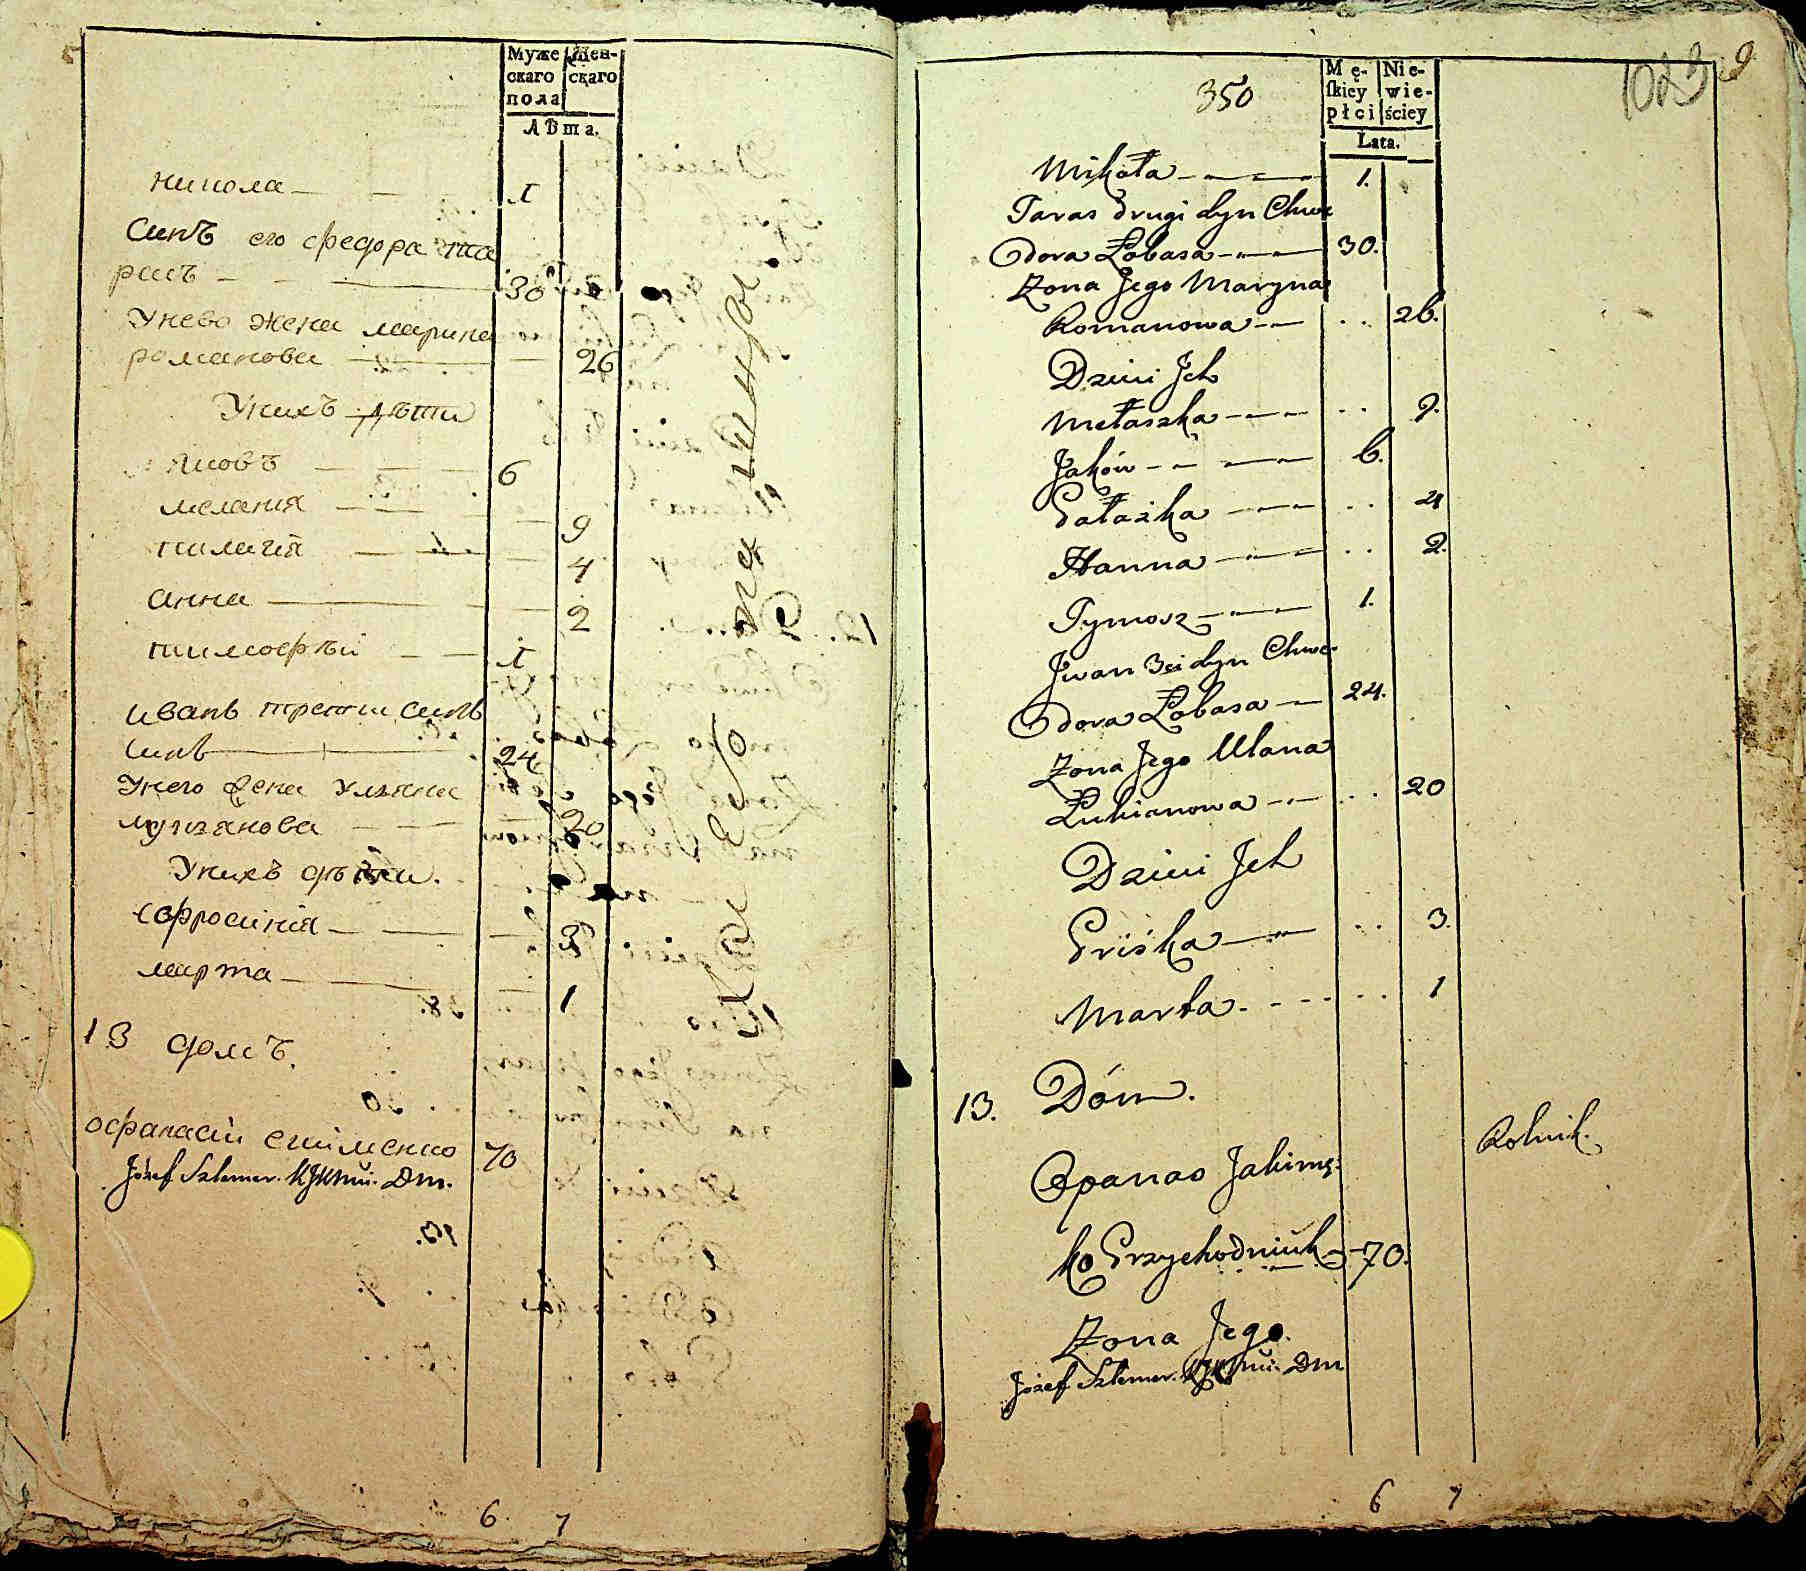 Муже Жен-
скаго скаго
пола
Лѣта.
никола 1
Синъ его федора та
расъ 30
Унево жена марина
романова 26
Унихъ дѣти
яковъ 6
мелания 9
палагія 4
анна 2
тимофѣй 1
иванъ трети синъ
синъ 24
Унего жена Уляна
лукіанова 20
Унихъ дѣти.
ефросинія 3
марта 1
13 домъ.
офанасіи екименко 70
Józef Szlemer. Dm.
6 7
350
1023 9
Mę- Nie-
skiey wie-
płci ściey
Lata.
Mikoła 1.
Taras drugi syn Chwe
dora Łobasa 30.
Żona Jego Maryna
Romanowa 26.
Dzieci Jch
Mełaszka 9.
Jaków 6.
Gałażka 4
Hanna 2.
Tymosz 1.
Jwan 3ci syn Chwe-
dora Łobasa 24.
Żona Jego Ulana
Łukianowa 20
Dzieci Jch
Priśka 3.
Marta 1
13. Dóm.
Rolnik.
Opanas Jakimę:
ko Przychodniuk 70.
Żona Jego
Józef Szlemer. Dm
6 7